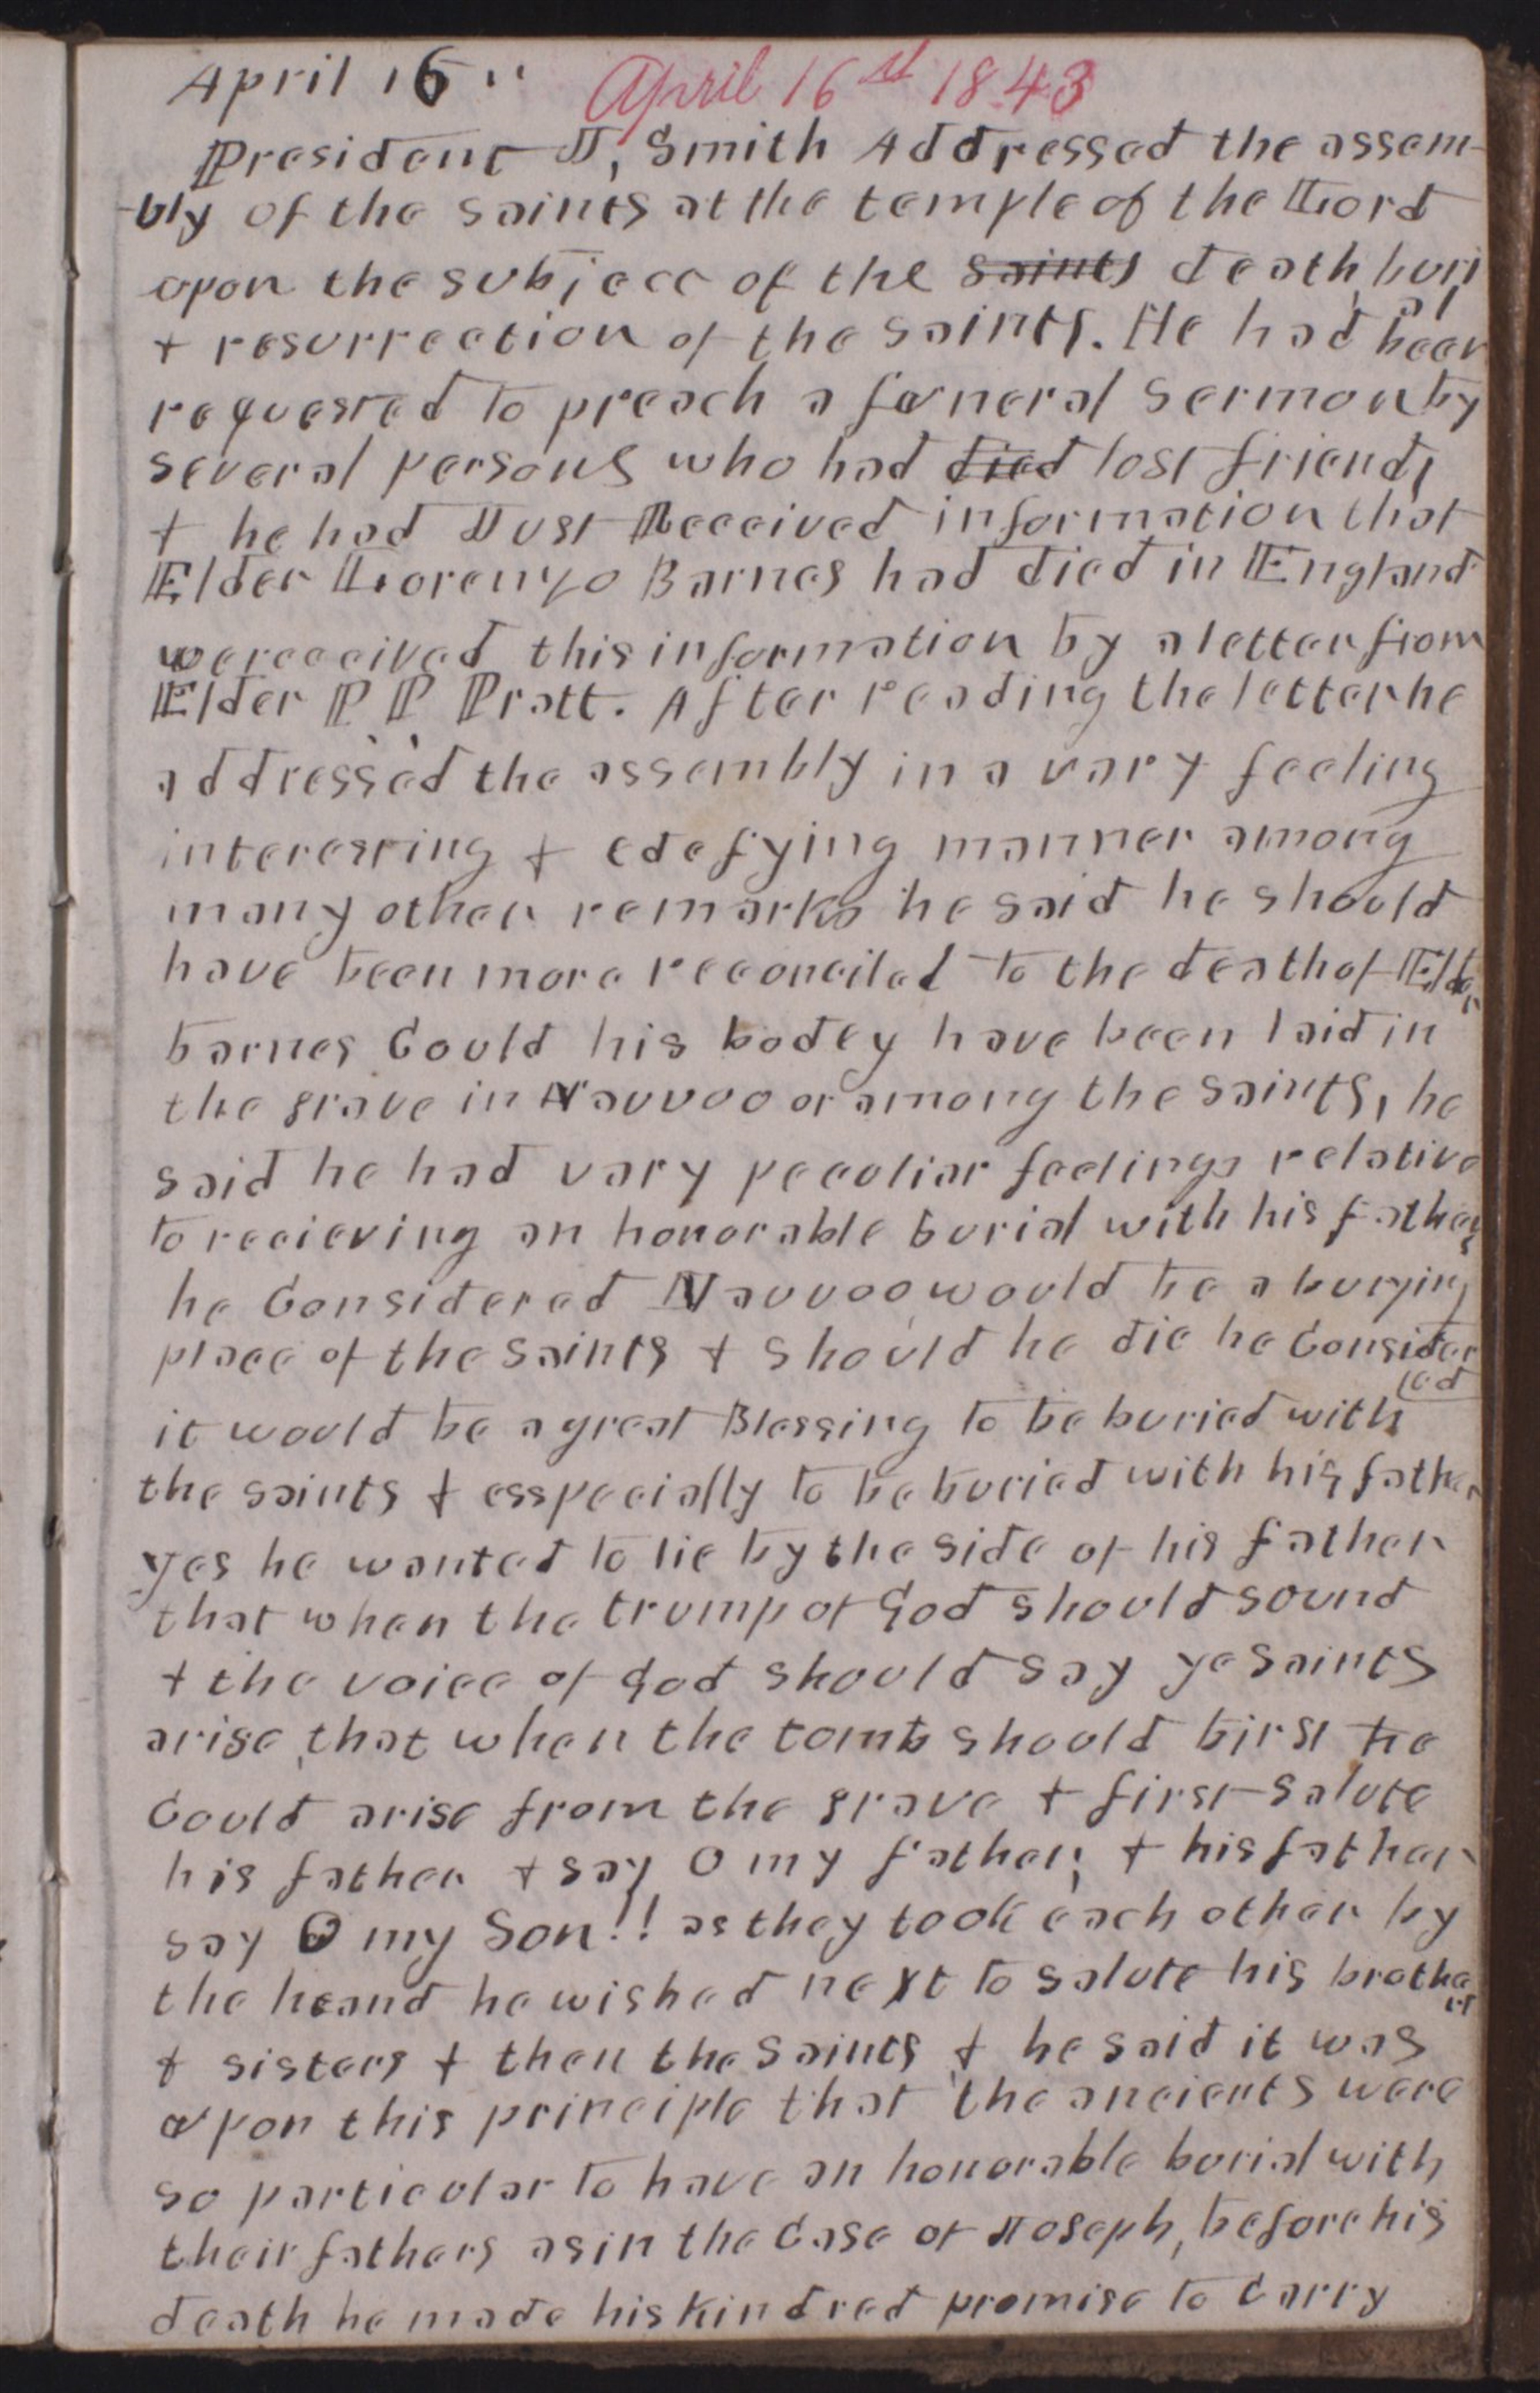 April 16" April 16st 1843
President J, Smith Addressed the assem-
-bly of the saints at the temple of the Lord
upon the subject of the saints death, buri
al
+ resurrection of the saints. He had been
requested to preach a funeral sermon by
several persons who had died lost friends
+ he had Just Received information that
Elder Lorenzo Barnes had died in England
we received this information by a letter from
Elder P P Pratt. After reading the letter he
addressed the assembly in a vary feeling
interesting + edefying manner among
many other remarks he said he should
have been more reconciled to the death of Elder
barnes Could his bodey have been laid in
the grave in Nauvoo or among the saints, he
said he had vary peculiar feelings relative
to recieving an honorable burial with his fathers
he Considered Nauvoo would be a burying
place of the saints + should he die he Consider
ed
it would be a great Blessing to be buried with
the saints + esspecially to be buried with his father
yes he wanted to lie by the side of his father
that when the trump of God should sound
+ the voice of God should say ye saints
arise that when the tomb should birst he
Could arise from the grave + first salute
his father + say O my father, + his father
say O my Son!! as they took each other by
the hand he wished next to salute his brothe
rs
+ sisters + then the saints + he said it was
upon this principle that the ancients were
so particular to have an honorable burial with
their fathers as in the Case of Joseph, before his
death he made his kindred promise to Carry